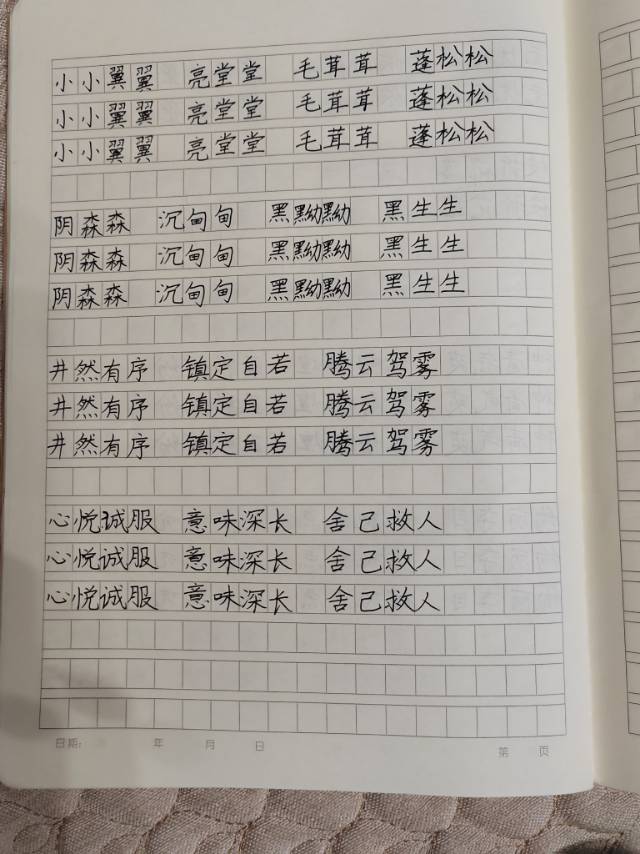 小小翼翼 亮堂堂 毛茸茸 蓬松松
小小翼翼 亮堂堂 毛茸茸 蓬松松
小小翼翼 亮堂堂 毛茸茸 蓬松松
阴森森 沉甸甸 黑黝黝 黑生生
阴森森 沉甸甸 黑黝黝 黑生生
阴森森 沉甸甸 黑黝黝 黑生生
井然有序 镇定自若 腾云驾雾
井然有序 镇定自若 腾云驾雾
井然有序 镇定自若 腾云驾雾
心悦诚服 意味深长 舍己救人
心悦诚服 意味深长 舍己救人
心悦诚服 意味深长 舍己救人
日期: 年 月 日 第 页